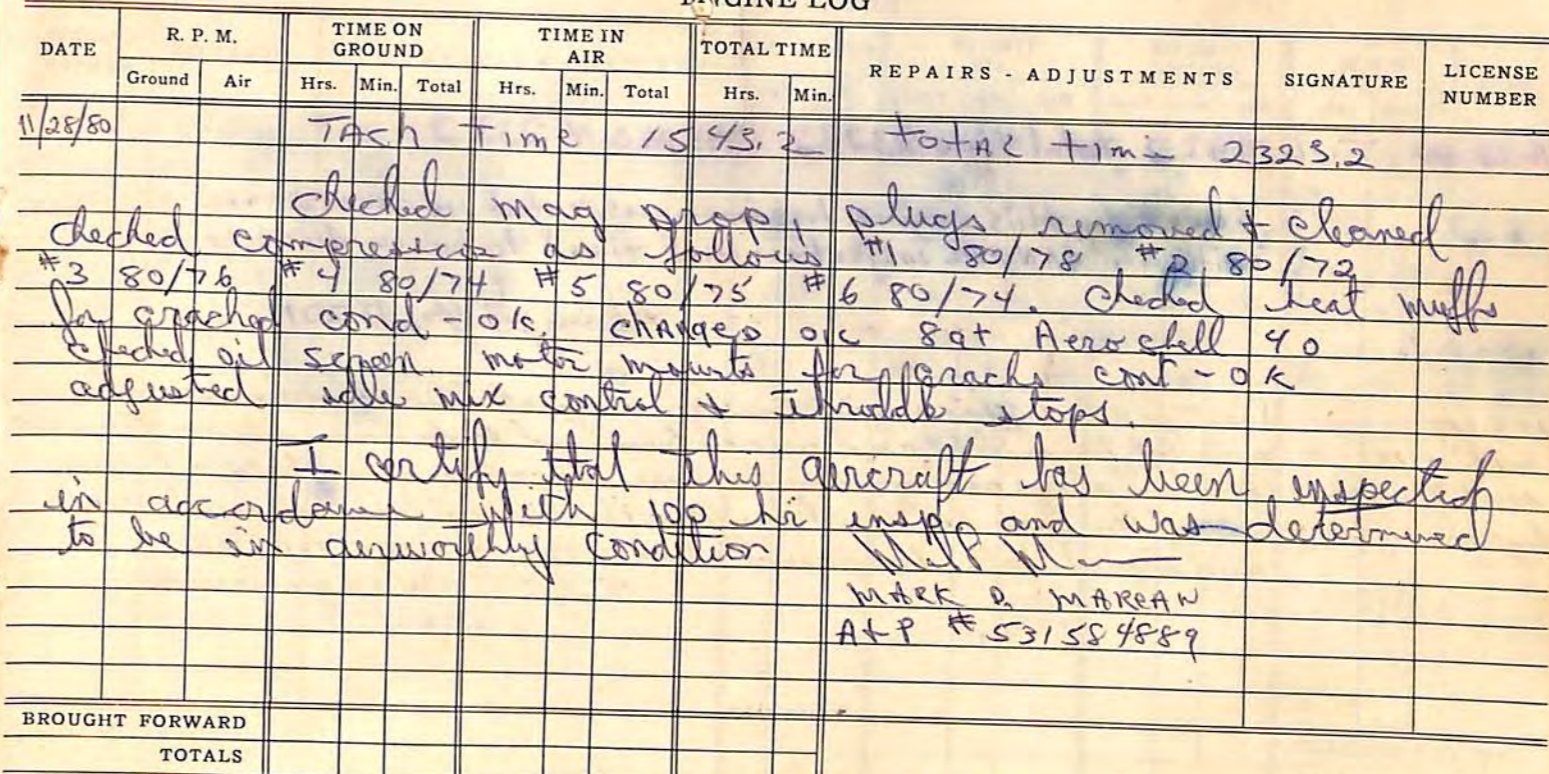 ENGINE LOG
DATE R. P. M. TIME ON GROUND TIME IN AIR TOTAL TIME REPAIRS - ADJUSTMENTS SIGNATURE LICENSE NUMBER
Ground Air Hrs. Min. Total Hrs. Min. Total Hrs. Min.
11/28/80 TAch Time 1543.2 totAl tim 2323.2
checked mag prop, plugs removed & cleaned
checked compression as follows #1 80/78 #2 80/72
#3 80/76 #4 80/74 #5 80/75 #6 80/74. checked heat muffs
for cracked cond - ok. changed oil 8qt Aeroshell 40
checked oil screen. motor mounts for cracks cont - ok
adjusted idle mix control & throddle stops.
I certify that this aircraft has been inspected
in accordance with 100 hr insp and was determined
to be in airworthy condition
MARK D. MAREAN
A+P # 531584889
BROUGHT FORWARD
TOTALS